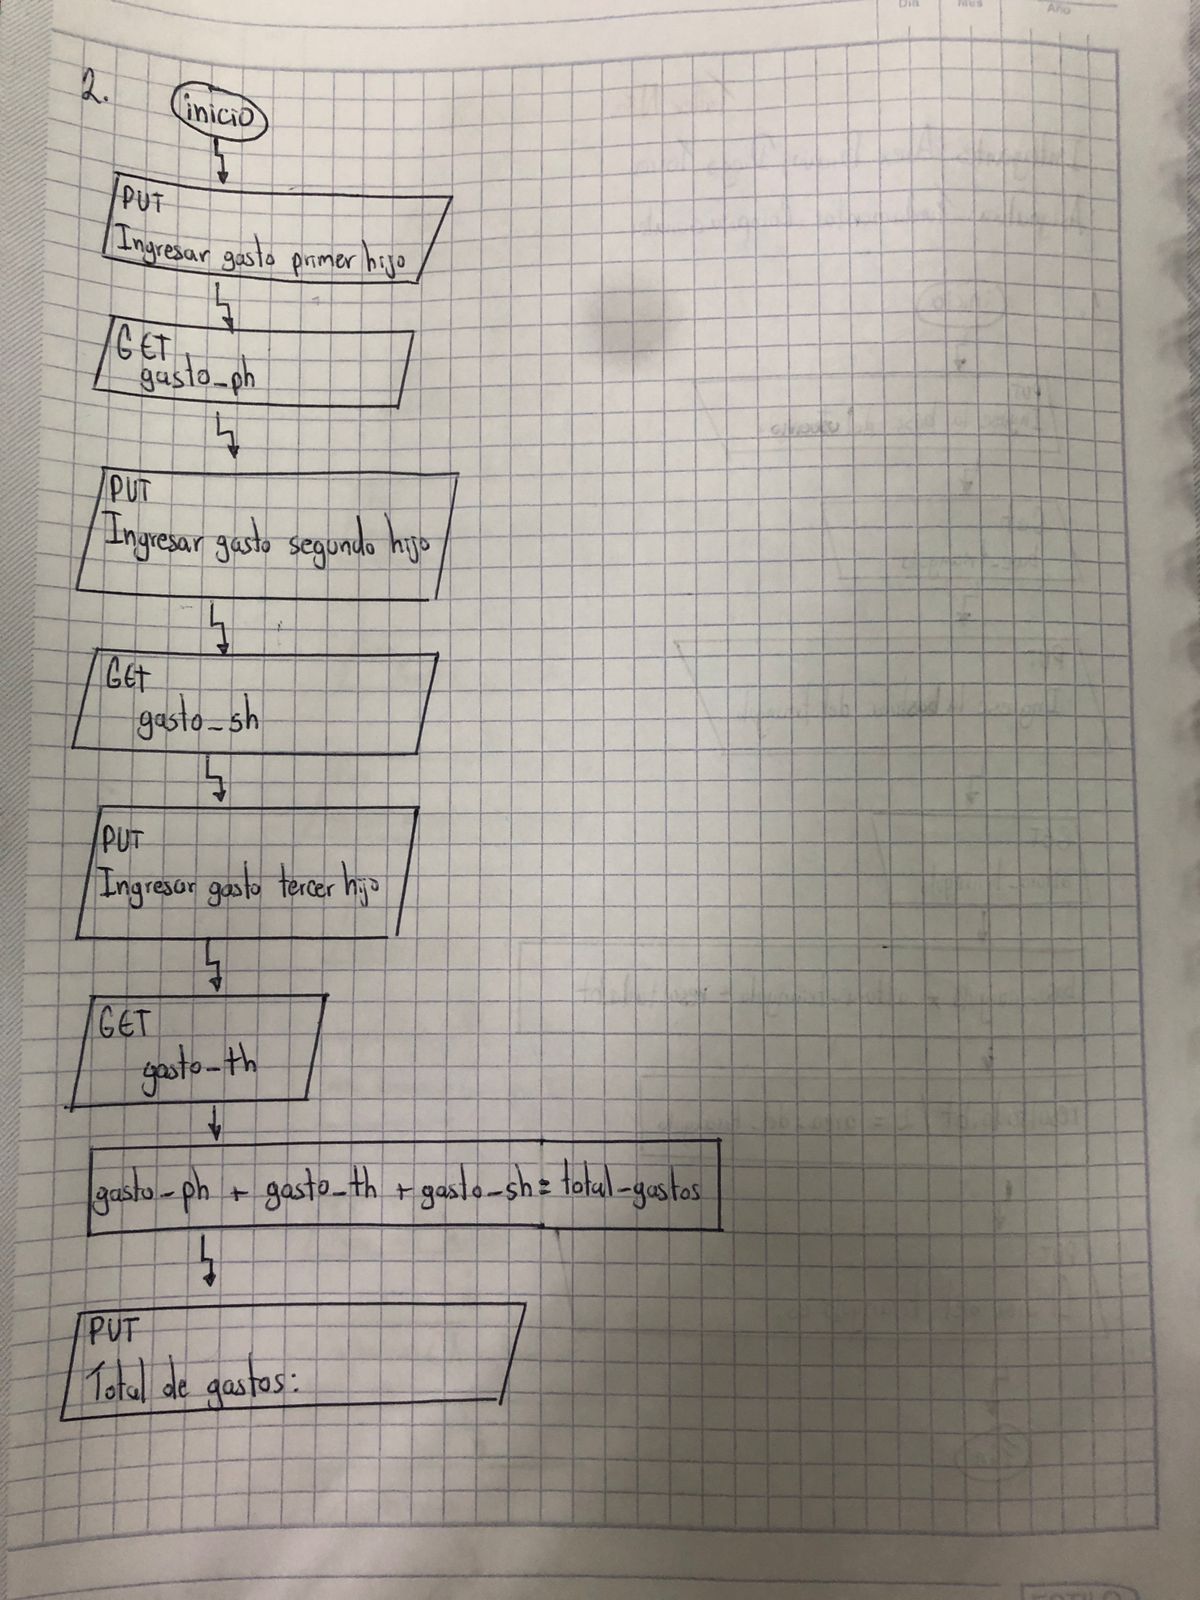 Dia Mes Año
2.
inicio
PUT
Ingresar gasto primer hijo
GET
gasto_ph
PUT
Ingresar gasto segundo hijo
GET
gasto_sh
PUT
Ingresar gasto tercer hijo
GET
gasto_th
gasto_ph + gasto_th + gasto_sh = total_gastos
PUT
Total de gastos: